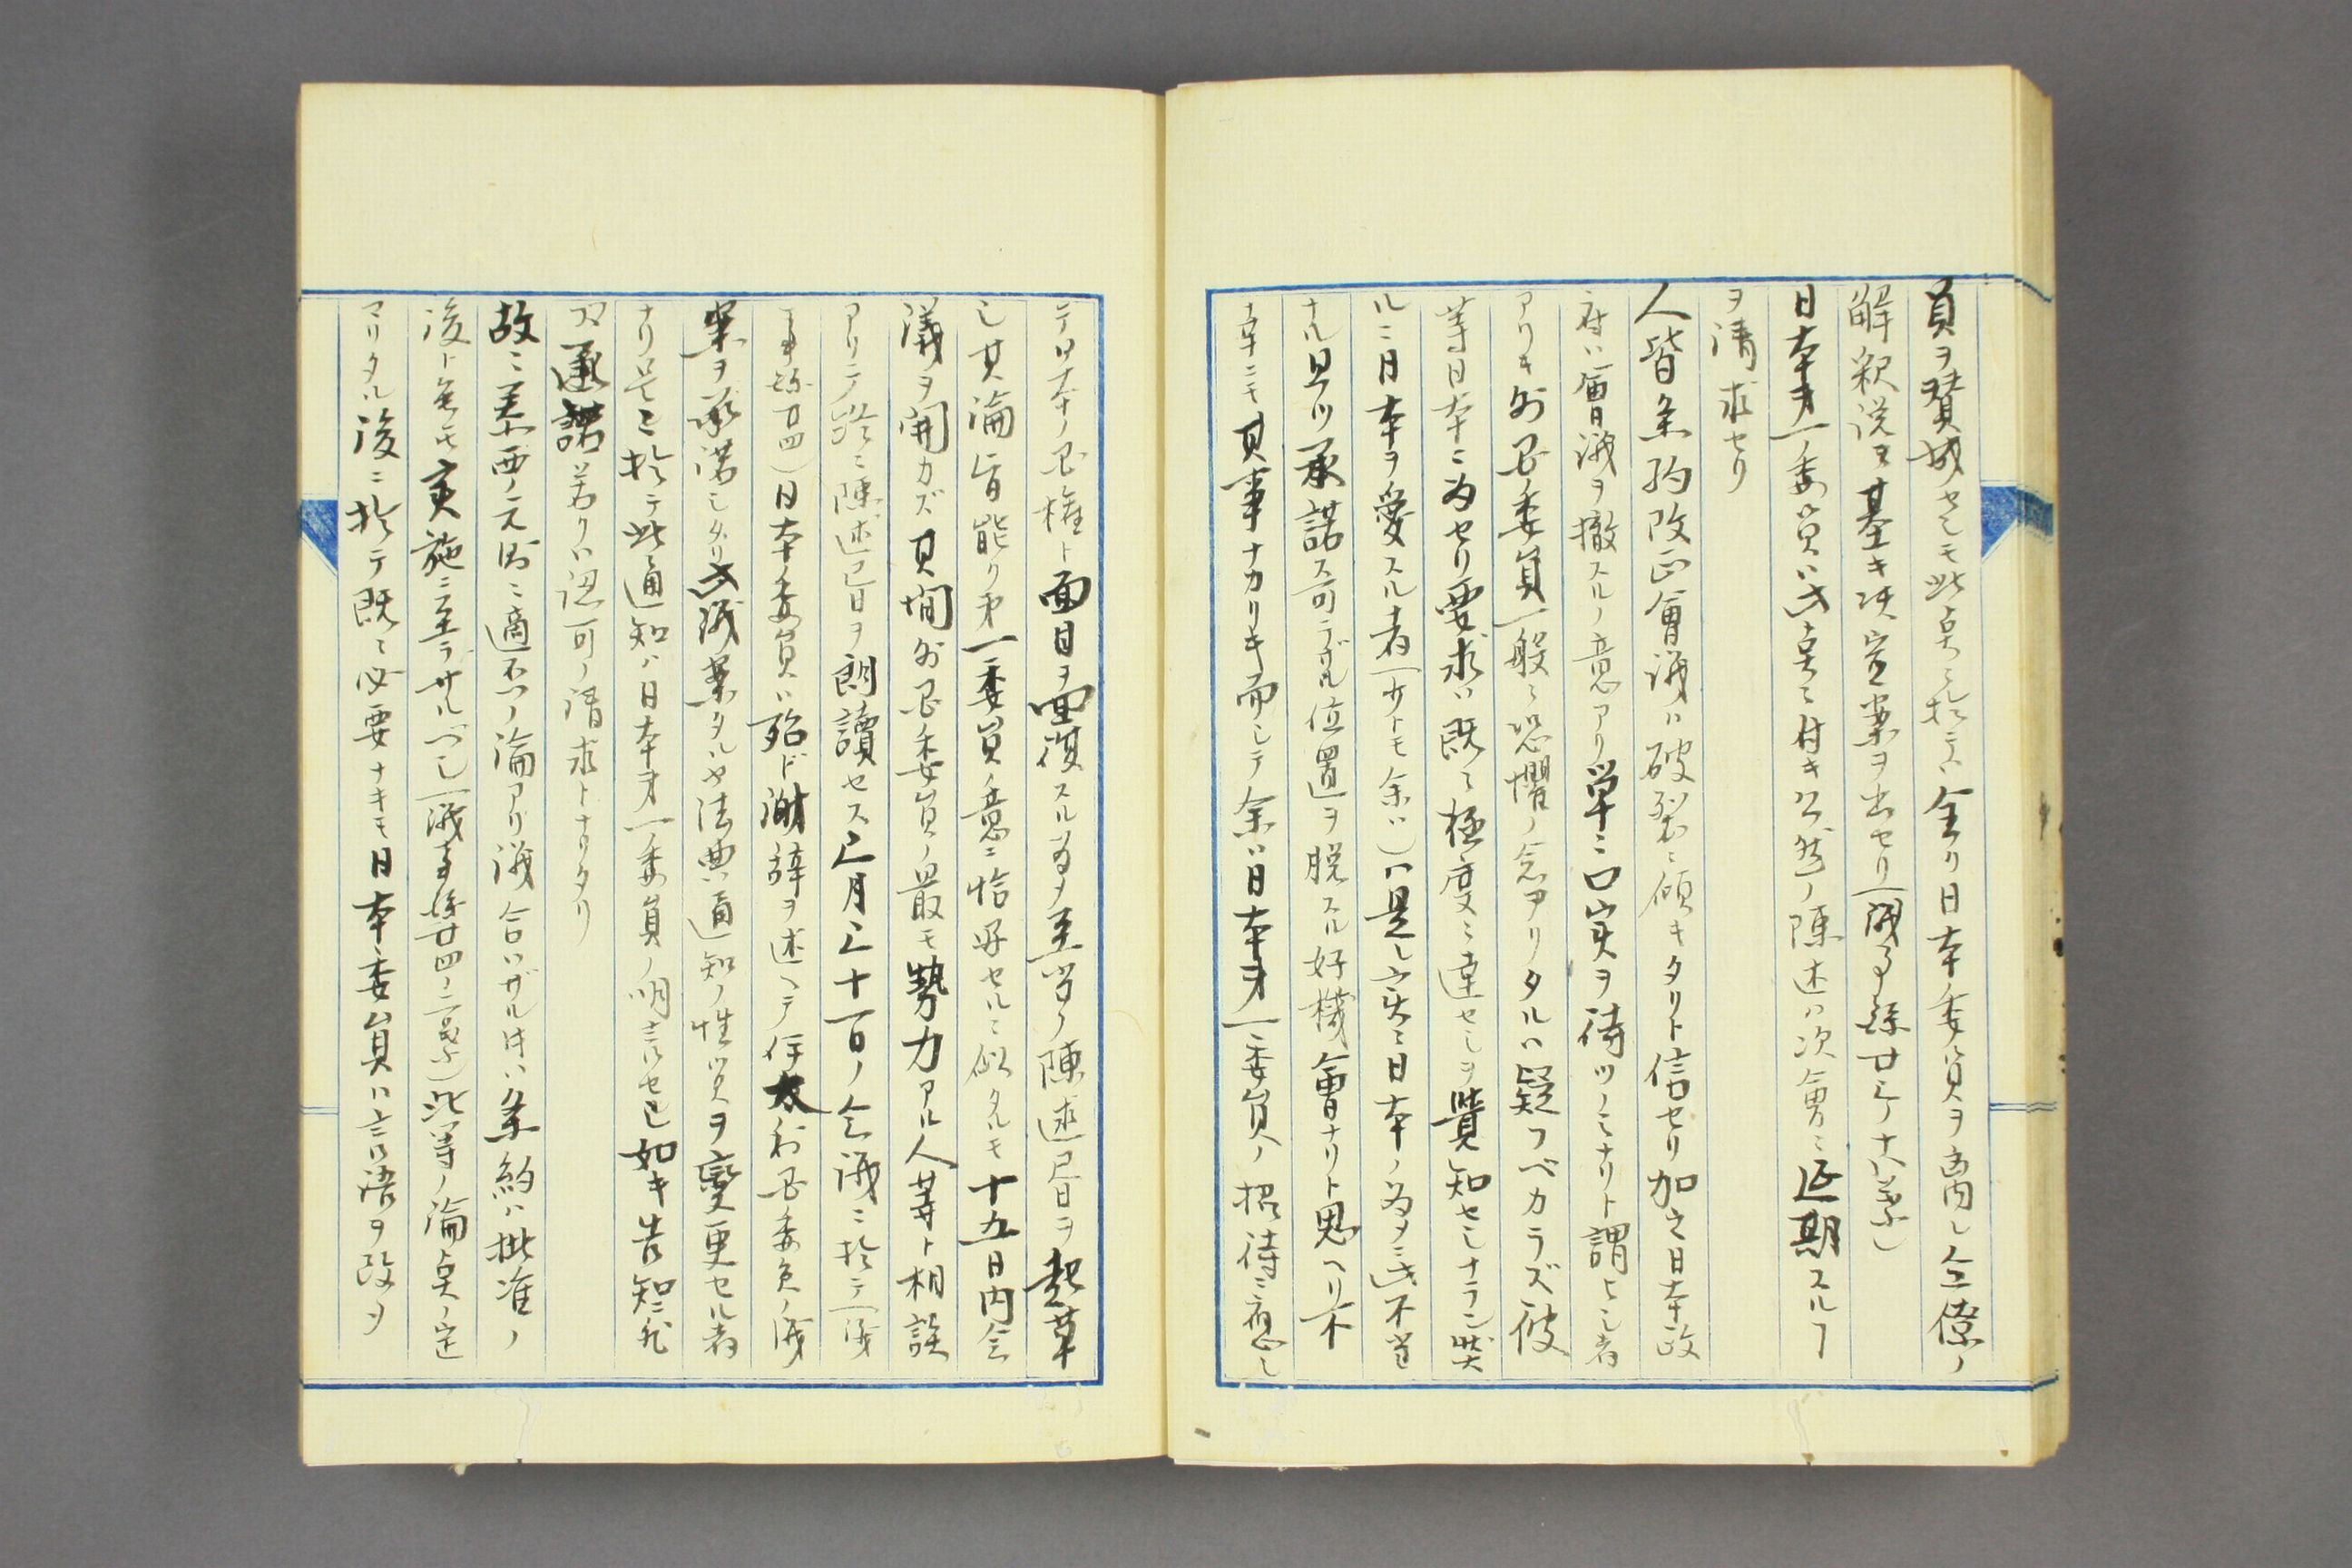 員ヲ賛成セシモ此点ニ於テハ全ク日本ノ委員ヲ窩内シ全僚ノ
解釈説ヲ基キ決定案ヲ出セリ(議事録廿六ノ十八葉)
日本才一ノ委員ハ此点ニ付キ公然ノ陳述ハ次會ニ延期スルヿ
ヲ請求セリ
人皆条約改正會議ハ破裂ニ傾キタリト信セリ加之日本政
府ハ會議ヲ撤スルノ意アリ単ニ口実ヲ待ツノミナリト謂ヒシ者
アリキ外国委員一般ニ恐懼ノ念アリタルハ疑フベカラズ彼
等日本ニ為セリ要求ハ既ニ極度ニ達セシヲ覺知セシナラン然
ルニ日本ヲ愛スル者(少トモ余ハ)ハ是レ実ニ日本ノ為メニ此不當
ナル且ツ承諾ス可ラザル位置ヲ脱スル好機會ナリト思ヘリ不
幸ニモ其事ナカリキ而シテ余ハ日本才一委員ノ招待ニ應シ
テ日本ノ国権ト面目ヲ回復スル為メ至當ノ陳述已日ヲ起草
シ其論旨能ク才一委員ノ意ニ恰好セルニ似タルモ十五日内会
議ヲ開カズ其間外国委員ノ最モ勢力アル人等ト相談
アリテ終ニ陳述已日ヲ朗讀セス三月三十一日ノ会議ニ於テ(議
事録廿四)日本委員ハ殆ド謝辞ヲ述ヘテ伊太利国委員ノ議
案ヲ承諾シタリ此議案タルヤ法典通知ノ性質ヲ變更セル者
ナリ是ニ於テ此通知ハ日本才一ノ委員ノ明言セシ如キ告知ニ非
ズ承諾若クハ認可ノ請求トナリタリ
故ニ泰西ノ元則ニ適否ノ論アリ議合ハザル時ハ条約ハ批准ノ
後ト無モ実施ニ至ラザルベシ(議事録廿四ノ二葉)此等ノ論点ノ定
マリタル後ニ於テ既ニ必要ナキモ日本委員ハ言語ヲ改メ